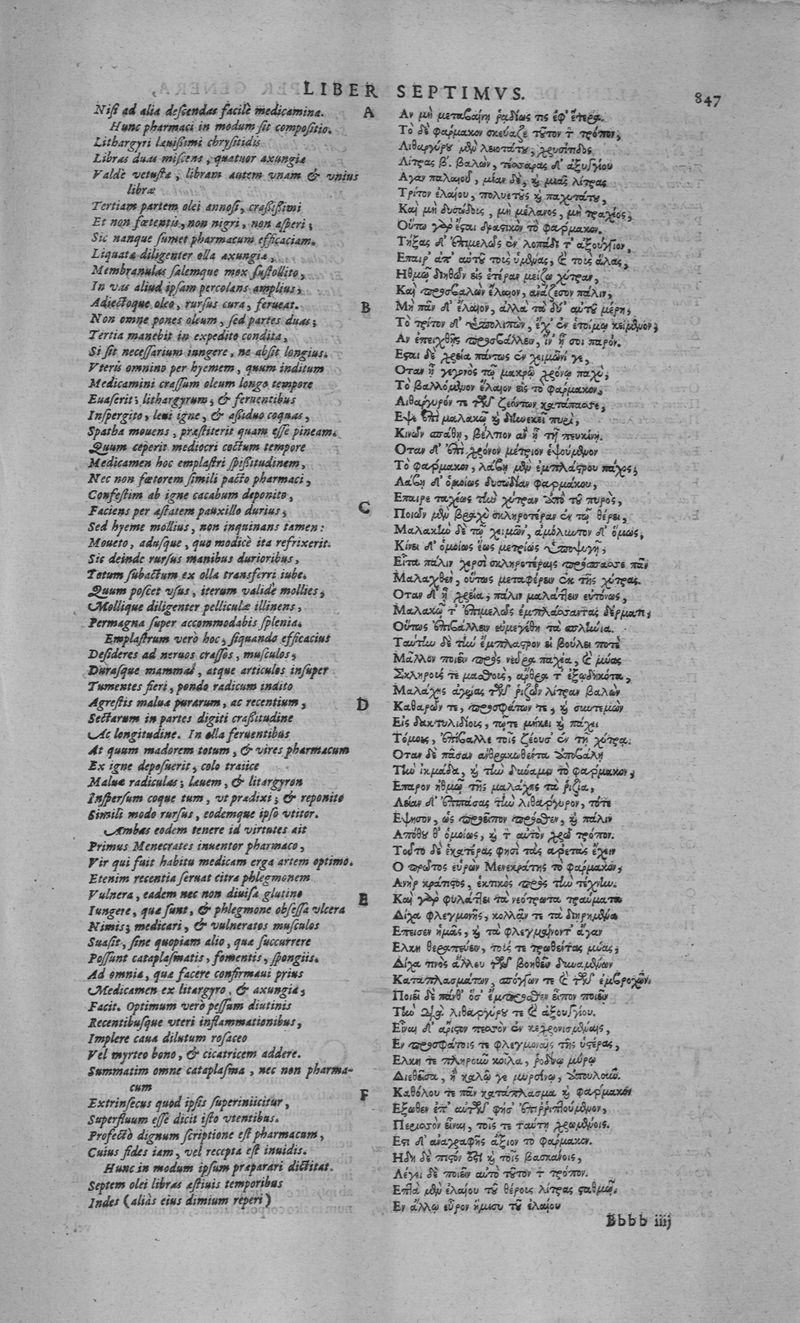 LIBER SEPTIMVS.
847
Nisi ad alia descendas facilè medicamina.
Hunc pharmaci in modum sit compositio.
Lithargyri leuissimi chrysitidis
Libras duas miscens, quatuor axungia
Valdè vetusta, libram autem vnam & vnius
libræ
Tertiam partem olei annosi, crassissimi
Et non fœtentis, non nigri, non asperi;
Sic nanque sumet pharmacum efficaciam.
Liquata diligenter olla axungia,
Membranulas salemque mox sustollito,
In vas aliud ipsam percolans amplius;
Adiectoque oleo, rursus cura, ferueat.
Non omne pones oleum, sed partes duas;
Tertia manebit in expedito condita,
Si sit necessarium iungere, ne absit longius.
Vteris omnino per hyemem, quum inditum
Medicamini crassum oleum longo tempore
Euaserit; lithargyrum; & feruentibus
Inspergito, leui igne, & assiduo coquas,
Spatha mouens, præstiterit quam esse pineam.
Quum ceperit mediocri coctum tempore
Medicamen hoc emplastri spissitudinem,
Nec non fœtorem simili pacto pharmaci,
Confestim ab igne cacabum deponito,
Faciens per æstatem pauxillo durius;
Sed hyeme mollius, non inquinans tamen:
Moueto, adusque, quo modicè ita refrixerit.
Sic deinde rursus manibus durioribus,
Totum subactum ex olla transferri iube.
Quum poscet vsus, iterum validè mollies;
Mollique diligenter pelliculæ illinens,
Permagna super accommodabis splenia.
Emplastrum verò hoc, siquando efficacius
Desideres ad neruos crassos, musculos;
Durasque mammas, atque articulos insuper
Tumentes fieri, pondo radicum indito
Agrestis maluæ purarum, ac recentium,
Sectarum in partes digiti crassitudine
Ac longitudine. In olla feruentibus
At quum madorem totum, & vires pharmacum
Ex igne deposuerit, colo traiice
Maluæ radiculas; læuem, & litargyron
Inspersum coque tum, vt prædixi; & reponito
Simili modo rursus, eodemque ipso vtitor.
Ambas eodem tenere id virtutes ait
Primus Menecrates inuentor pharmaco,
Vir qui fuit habitu medicam erga artem optimo.
Etenim recentia seruat citra phlegmonem
Vulnera, eadem nec non diuisa glutino
Iungere, quæ sunt, & phlegmone obsessa vlcera
Nimis; medicari, & vulneratos musculos
Suasit, sine quopiam alio, quæ succurrere
Possunt cataplasmatis, fomentis, spongiis.
Ad omnia, quæ facere confirmaui prius
Medicamen ex litargyro, & axungia;
Facit. Optimum verò pessum diutinis
Recentibusque vteri inflammationibus,
Implere caua dilutum rosaceo
Vel myrteo bono, & cicatricem addere.
Summatim omne cataplasma, nec non pharma-
cum
Extrinsecus quod ipsis superiniicitur,
Superfluum esse dicit isto vtentibus.
Profectò dignum scriptione est pharmacum,
Cuius fides iam, vel recepta est inuidis.
Hunc in modum ipsum præparari dictitat.
Septem olei libras æstiuis temporibus
Indes (aliàs eius dimium reperi)
A
B
C
D
E
F
Αν μὴ μεταβαίνῃ ῥαδίως τις ἐφ' ἕτερα.
Τὸ δὲ φάρμακον σκεύαζε τοῦτον τ τρόπον,
Λιθαργύρου μὲν λειοτάτου, χρυσίτιδος
Λίτρας β. βαλὼν, τέσσαρας δ' ἀξουγγίου
Αγαν παλαιοῦ, μίαν δὲ, καὶ μιᾶς λίτρας
Τρίτον ἐλαίου, πολυετοῦς καὶ παχυτάτου,
Καὶ μὴ δυσώδους, μὴ μέλανος, μὴ τραχέος,
Οὕτω γὰρ ἔσται δραστικὸν τὸ φάρμακον.
Τήξας δ' ἐπιμελῶς ἐν λοπάδι τ' ἀξούγγιον,
Επαιρ' ἀπ' αὐτοῦ τοὺς ὑμένας, καὶ τοὺς ἅλας,
Ηθμῷ διηθῶν εἰς ἑτέραν μείζω χύτραν,
Καὶ προσβαλὼν ἔλαιον, ἀνάζεσον πάλιν,
Μὴ πᾶν δ' ἔλαιον, ἀλλὰ τὰ δύ' αὐτοῦ μέρη,
Τὸ τρίτον δ' ὑπολιπὼν, ἔχ' ἐν ἑτοίμῳ κείμενον,
Αν ἐπειχθῇς προσβάλλειν, ἵν' ᾖ σοι παρόν.
Εσται δὲ χρεία πάντως ἐν χειμῶνί γε,
Οταν ᾖ γεγονὸς τῷ μακρῷ χρόνῳ παχὺ,
Τὸ βαλλόμενον ἔλαιον εἰς τὸ φάρμακον,
Λιθάργυρόν τε τῶν ζεόντων κατάπασσε,
Εψε ἐπὶ μαλακῷ καὶ διηνεκεῖ πυρὶ,
Κινῶν σπάθῃ, βέλτιον ἂν ᾖ τῇ πευκίνῃ.
Οταν δ' ἐπὶ χρόνον μέτριον ἑψούμενον
Τὸ φάρμακον, λάβῃ μὲν ἐμπλάστρου πάχος,
Λάβῃ δ' ὁμοίως δυσωδίαν φαρμάκου,
Επαιρε ταχέως τὴν χύτραν ἀπὸ τοῦ πυρὸς,
Ποιῶν μὲν βραχὺ σκληροτέραν ἐν τῷ θέρει,
Μαλακὴν δὲ τῷ χειμῶνι, ἀμόλυντον δ' ὅμως,
Κίνει δ' ὁμοίως ἕως μετρίως ἀποψυγῇ,
Εἶτα πάλιν χερσὶ σκληροτέραις πᾶν
Μαλαχθὲν, οὕτως μεταφέρειν ἐκ τῆς χύτρας.
Οταν δ' ᾖ χρεία, πάλιν μαλάττειν εὐτόνως,
Μαλακῷ τ' ἐπιμελῶς ἐμπλάσαντας δέρματι,
Οὕτως ἐπιβάλλειν εὐμεγέθη τὰ σπληνία.
Ταύτην δὲ τὴν ἔμπλαστρον εἰ βούλει ποτὲ
Μᾶλλον ποιεῖν πρὸς νεῦρα παχέα, καὶ μύας
Σκληρούς τε μασθοὺς, ἄρθρα τ' ἐξῳδηκότα,
Μαλάχης ἀγρίας τῶν ῥιζῶν λίτραν βαλὼν
Καθαρῶν τε, προσφάτων τε, καὶ συντεμὼν
Εἰς δακτυλιδίους, τῷ τε μήκει καὶ πάχει
Τόμους, ἐπίβαλλε τοῖς ζέουσ' ἐν τῇ χύτρᾳ.
Οταν δὲ πᾶσαν ἀνθρακωθέντα ἀποβάλῃ
Τὴν ἰκμάδα, καὶ τὴν δύναμιν τὸ φάρμακον,
Επαρον ἠθμῷ τῆς μαλάχης τὰ ῥιζία,
Λείαν δ' ἐπιπάσας τὴν λιθάργυρον, τότε
Εψησον, ὡς προεῖπον πρόσθεν, καὶ πάλιν
Απόθου θ' ὁμοίως, καὶ τ αὐτὸν χρῶ τρόπον.
Τοῦτο δὲ ἑκατέρας φησὶ τὰς ἀρετὰς ἔχειν
Ο πρῶτος εὑρὼν Μενεκράτης τὸ φάρμακον,
Ανὴρ κράτιστος, ἑκτικὸς πρὸς τὴν τέχνην.
Καὶ γὰρ φυλάττει τὰ νεότρωτα τραύματα
Δίχα φλεγμονῆς, κολλᾶν τε τὰ διῃρημένα
Επεισεν ἡμᾶς, καὶ τὰ φλεγμαίνοντ' ἄγαν
Ελκη θεραπεύειν, τούς τε τρωθέντας μύας,
Δίχα τινὸς ἄλλου τῶν βοηθεῖν δυναμένων
Καταπλασμάτων, σπόγγων τε καὶ τῶν ἐμβροχῶν.
Ποιεῖ δὲ πάνθ' ὅσ' ἔμπροσθεν εἶπον ποιεῖν
Τὴν διὰ λιθαργύρου τε καὶ ἀξουγγίου.
Εἶναι δ' ἄριστον πεσσὸν ἐν κεχρονισμέναις,
Εν προσφάτοις τε φλεγμοναῖς τῆς ὑστέρας,
Ελκη τε πληροῦν κοῖλα, ῥοδίνῳ μύρῳ
Διεθεῖσα, ἢ καλῷ γε μυρσίνῳ, ἀπουλοῦν.
Καθόλου τε πᾶν κατάπλασμα καὶ φάρμακον
Εξωθεν ἐπ' αὐτῶν φησ' ἐπιρριπτούμενον,
Περισσὸν εἶναι, τοῖς τε ταύτῃ χρωμένοις.
Εστι δ' ἀναγραφῆς ἄξιον τὸ φάρμακον.
Ηδη δὲ πιστόν ἐστι καὶ τοῖς βασκάνοις,
Λέγει δὲ ποιεῖν αὐτὸ τοῦτον τ τρόπον.
Επτὰ μὲν ἐλαίου τοῦ θέρους λίτρας σταθμῷ.
Εν ἄλλῳ εὗρον ἥμισυ τοῦ ἐλαίου
Bbbb iiij